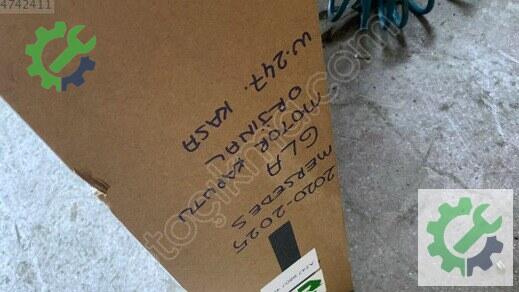 4742411
2020-2025
MERSEDES
GLA
MOTOR KAPUTU
ORJİNAL
W.247. KASA